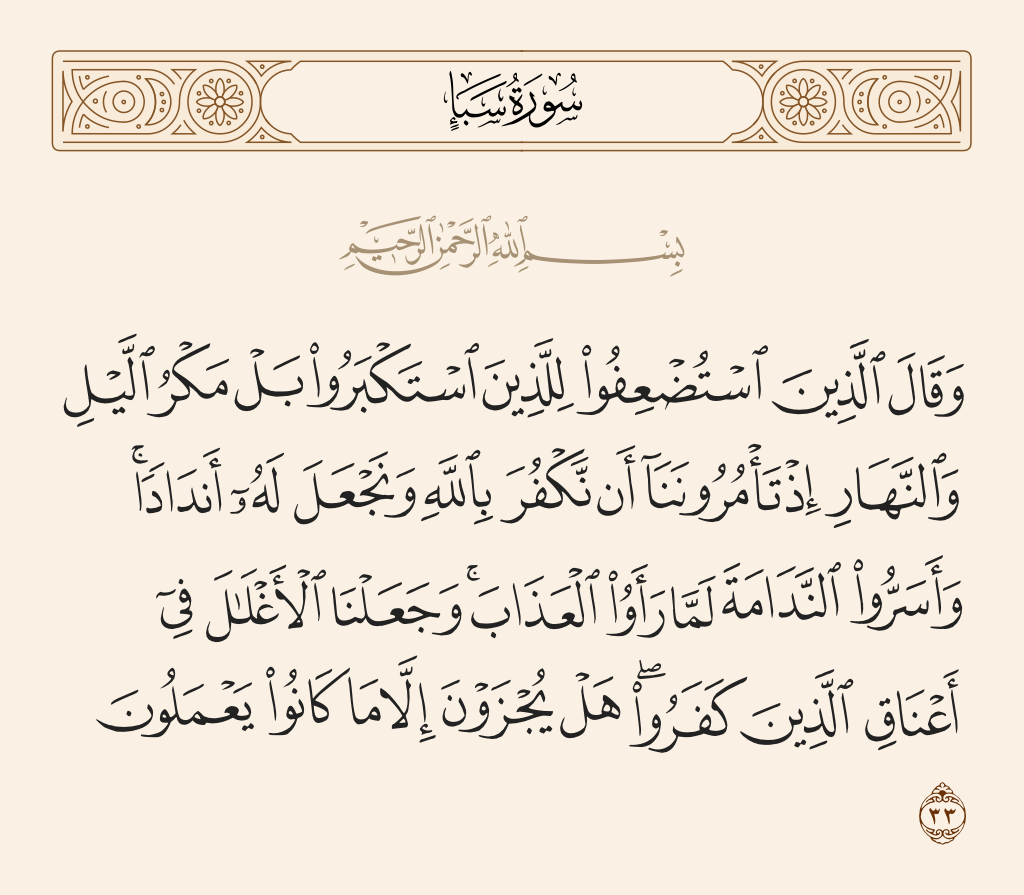 سُورَةُ سَبَإٍ
بِسْمِ ٱللَّهِ ٱلرَّحْمَٰنِ ٱلرَّحِيمِ
وَقَالَ ٱلَّذِينَ ٱسْتُضْعِفُوا۟ لِلَّذِينَ ٱسْتَكْبَرُوا۟ بَلْ مَكْرُ ٱلَّيْلِ
وَٱلنَّهَارِ إِذْ تَأْمُرُونَنَآ أَن نَّكْفُرَ بِٱللَّهِ وَنَجْعَلَ لَهُۥٓ أَندَادًا ۚ
وَأَسَرُّوا۟ ٱلنَّدَامَةَ لَمَّا رَأَوُا۟ ٱلْعَذَابَ ۚ وَجَعَلْنَا ٱلْأَغْلَٰلَ فِىٓ
أَعْنَاقِ ٱلَّذِينَ كَفَرُوا۟ ۖ هَلْ يُجْزَوْنَ إِلَّا مَا كَانُوا۟ يَعْمَلُونَ
٣٣